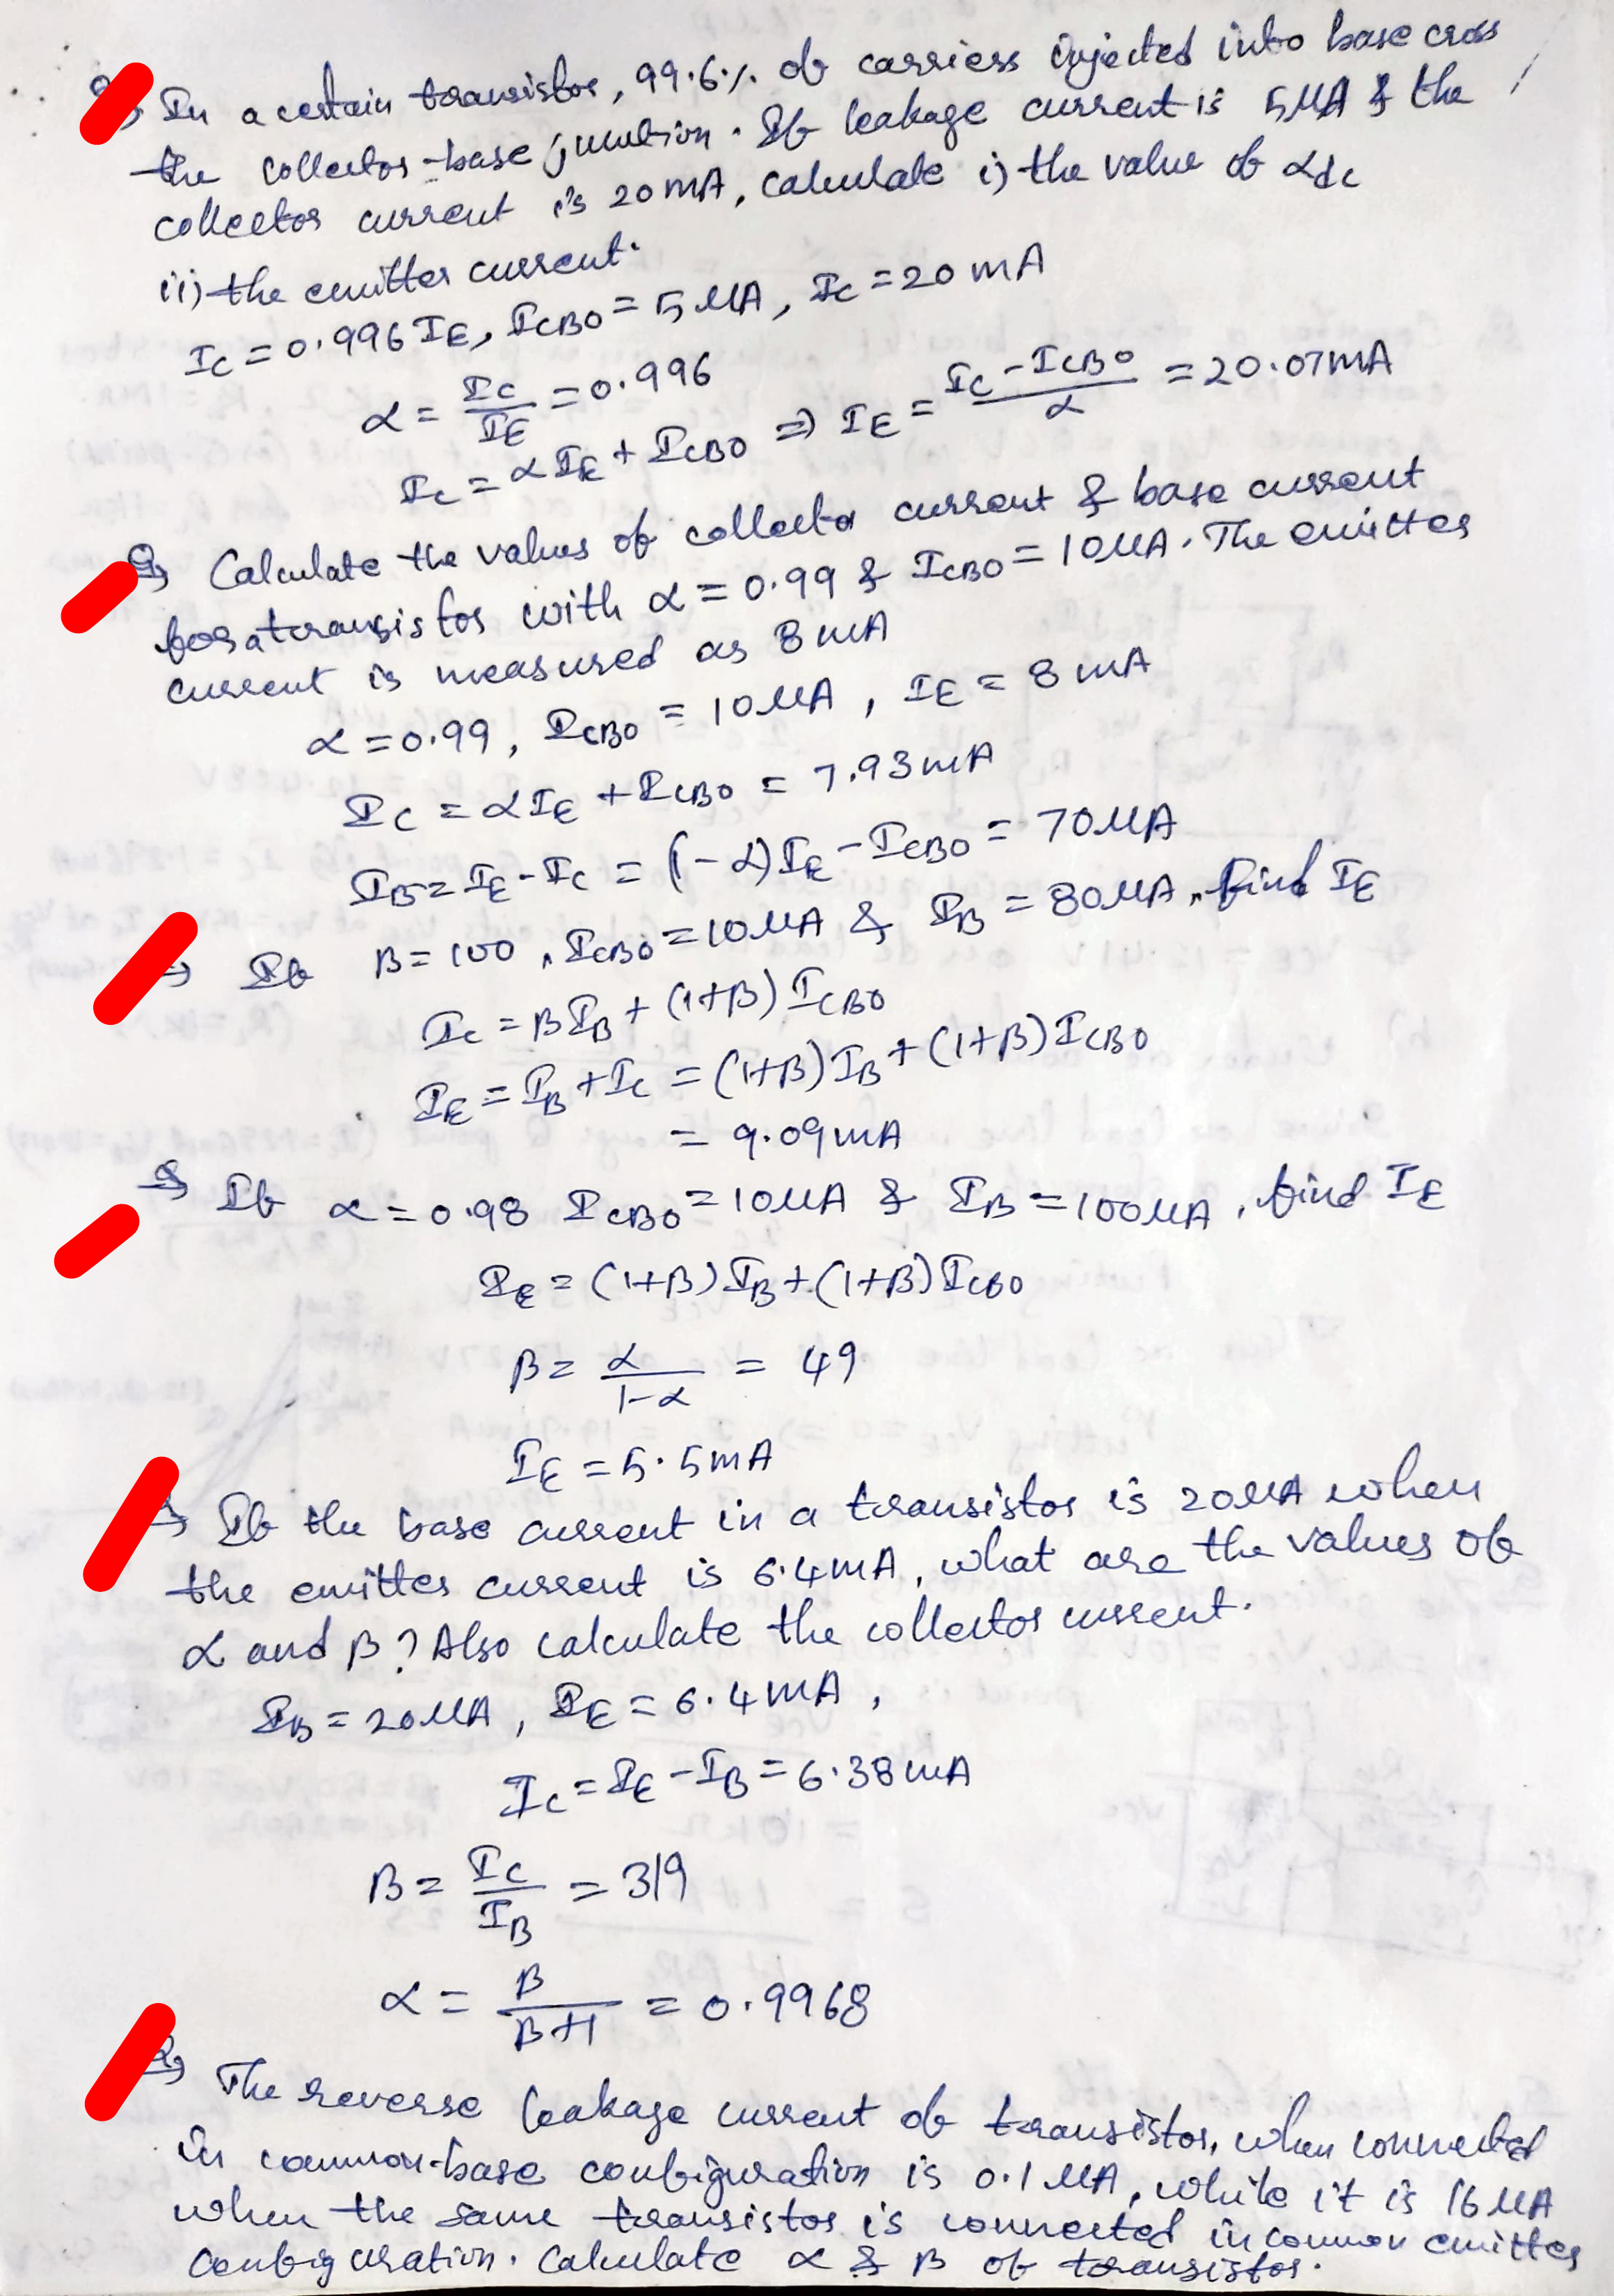 Q, In a certain transistor, 99.6% of carriers injected into base cross
the collector-base junction. If leakage current is 5μA & the
collector current is 20mA, calculate i) the value of αdc
ii) the emitter current.
IC = 0.996 IE, ICBO = 5μA, IC = 20mA
α = IC/IE = 0.996
IC = αIE + ICBO ⇒ IE = (IC - ICBO)/α = 20.07mA
Q, Calculate the values of collector current & base current
for a transistor with α = 0.99 & ICBO = 10μA. The emitter
current is measured as 8mA
α = 0.99, ICBO = 10μA, IE = 8mA
IC = αIE + ICBO = 7.93mA
IB = IE - IC = (1-α)IE - ICBO = 70μA
If β = 100, ICBO = 10μA & IB = 80μA, find IE
IC = βIB + (1+β)ICBO
IE = IB + IC = (1+β)IB + (1+β)ICBO
= 9.09mA
Q, If α = 0.98 ICBO = 10μA & IB = 100μA, find IE
IE = (1+β)IB + (1+β)ICBO
β = α/(1-α) = 49
IE = 5.5mA
If the base current in a transistor is 20μA when
the emitter current is 6.4mA, what are the values of
α and β? Also calculate the collector current.
IB = 20μA, IE = 6.4mA,
IC = IE - IB = 6.38mA
β = IC/IB = 319
α = β/(β+1) = 0.9968
Q, The reverse leakage current of transistor, when connected
in common-base configuration is 0.1μA, while it is 16μA
when the same transistor is connected in common emitter
configuration. Calculate α & β of transistor.